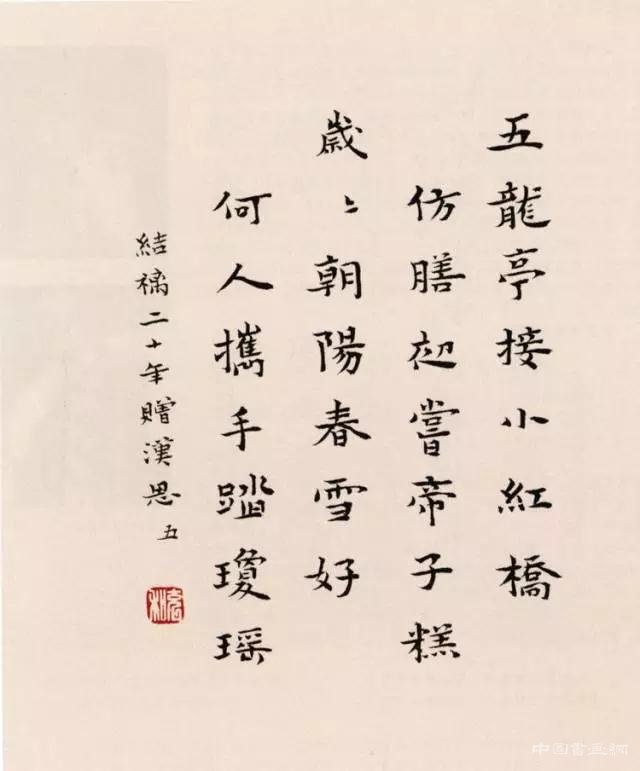 五龍亭接小紅橋
仿膳初嘗帝子糕
歲〻朝陽春雪好
何人攜手踏瓊瑶
結褵二十年贈漢思 五
充和
中国書画網